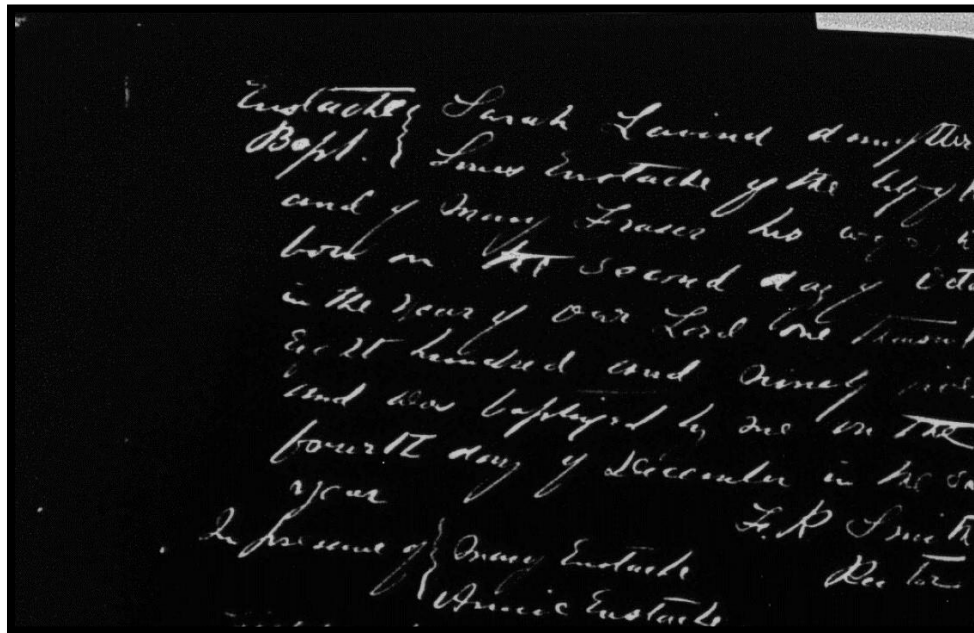 Eustache } Sarah Lavind daughter
Bapt. } Louis Eustache of the
and of Mary Fraser his wife,
born on the second day of Octo
in the year of our Lord one thousand
Eight hundred and Ninety
and was baptized by me on the
fourth day of December in the sa
year
F. R Smith
Rector
In presence of } Mary Eustache
Annie Eustache